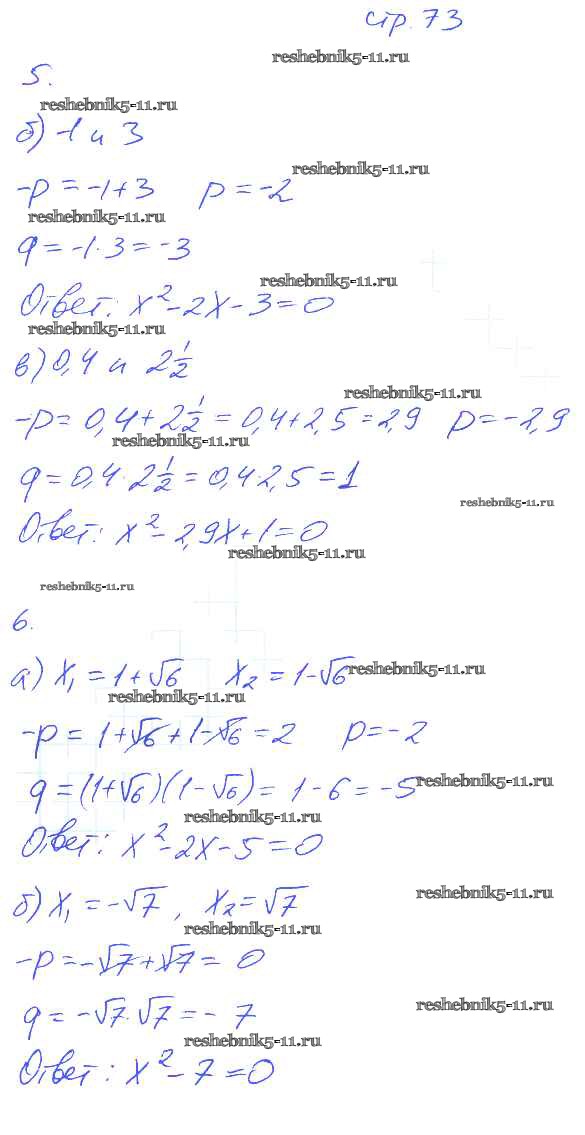 стр. 73
reshebnik5-11.ru
5.
reshebnik5-11.ru
б) -1 и 3
reshebnik5-11.ru
-p = -1+3   p = -2
reshebnik5-11.ru
q = -1·3 = -3
reshebnik5-11.ru
Ответ: x² - 2x - 3 = 0
reshebnik5-11.ru
в) 0,4 и 2 1/2
reshebnik5-11.ru
-p = 0,4 + 2 1/2 = 0,4 + 2,5 = 2,9   p = -2,9
reshebnik5-11.ru
q = 0,4 · 2 1/2 = 0,4·2,5 = 1
reshebnik5-11.ru
Ответ: x² - 2,9x + 1 = 0
reshebnik5-11.ru
reshebnik5-11.ru
6.
а) x₁ = 1+√6   x₂ = 1-√6
reshebnik5-11.ru
reshebnik5-11.ru
-p = 1+√6 + 1-√6 = 2   p = -2
reshebnik5-11.ru
q = (1+√6)(1-√6) = 1 - 6 = -5
reshebnik5-11.ru
Ответ: x² - 2x - 5 = 0
reshebnik5-11.ru
б) x₁ = -√7, x₂ = √7
reshebnik5-11.ru
-p = -√7 + √7 = 0
reshebnik5-11.ru
q = -√7·√7 = -7
reshebnik5-11.ru
Ответ: x² - 7 = 0